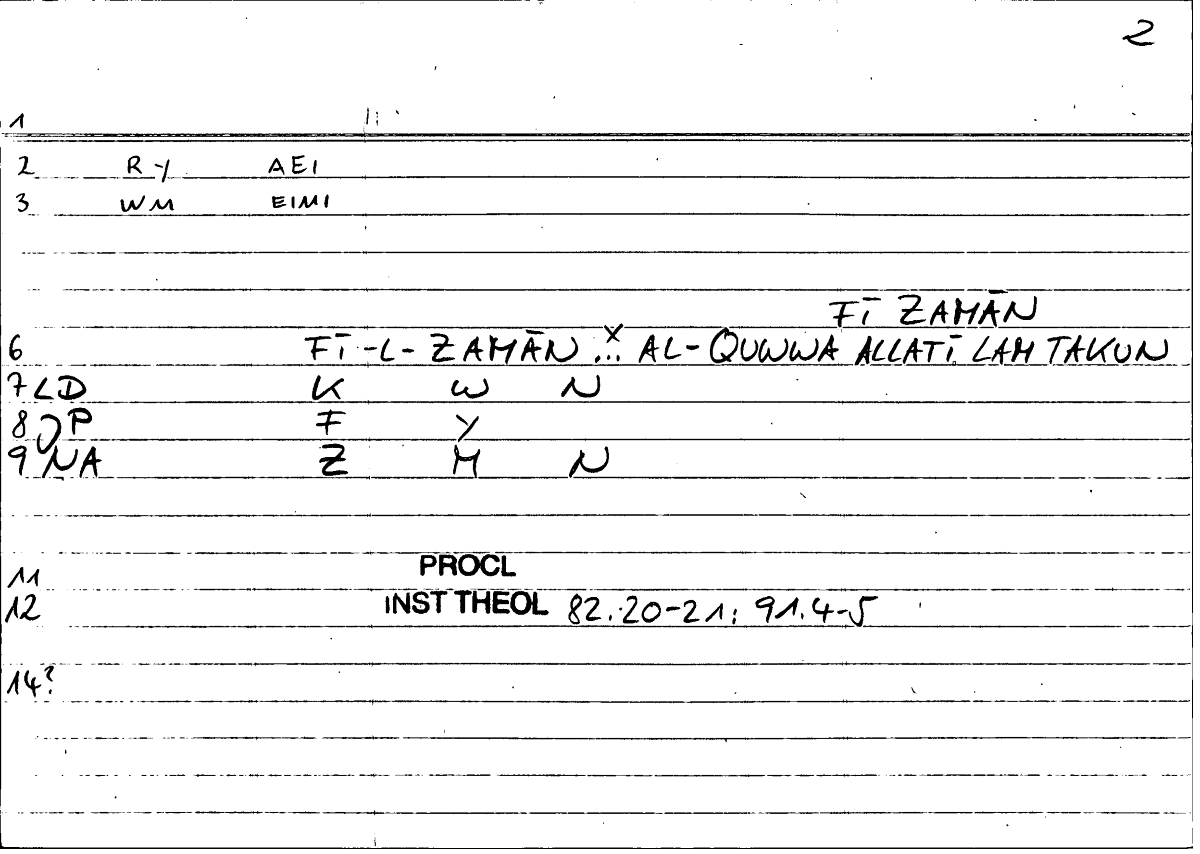 2
1
2 RY AEI
3 WM EIMI
FĪ ZAMĀN
6 FĪ-L-ZAMĀN x... AL-QUWWA ALLATĪ LAM TAKUN
7 LD K W N
8 JP F Y
9 NA Z M N
11 PROCL
12 INST THEOL 82.20-21; 91.4-5
14?